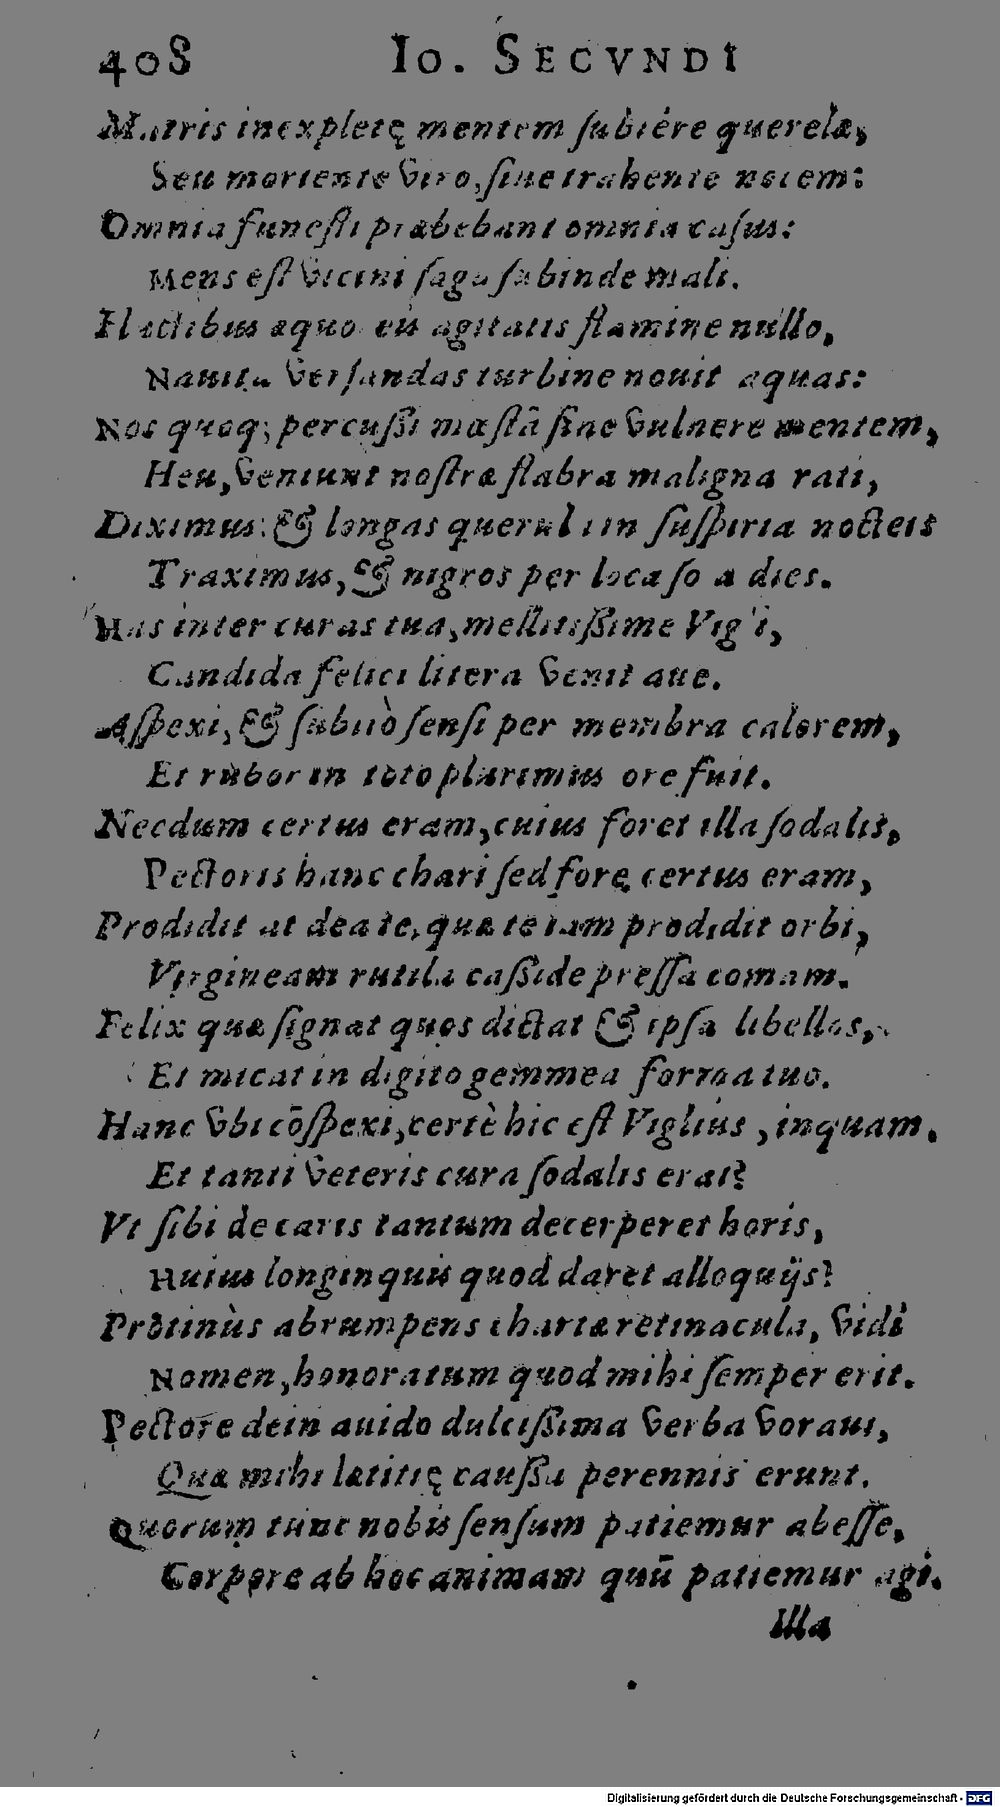 408 Io. SECVNDI
Matris inexpletę mentem ſubiêre querelæ,
Seu moriente viro, ſiue trahente necem:
Omnia funeſti præbebant omnia caſus:
Mens eſt vicini ſaga ſubinde mali.
Fluctibus æquoreis agitatis flamine nullo,
Nauita verſandas turbine nouit aquas:
Nos quoq; percuſſi mæſtā ſine vulnere mentem,
Heu, veniunt noſtræ flabra maligna rati,
Diximus: & longas querula in ſuſpiria nocteis
Traximus, & nigros per loca ſola dies.
Has inter curas tua, mellitiſſime Vigli,
Candida felici litera venit aue.
Aſpexi, & ſubitò ſenſi per membra calorem,
Et rubor in toto plurimus ore fuit.
Necdum certus eram, cuius foret illa ſodalis,
Pectoris hanc chari ſed fore certus eram,
Prodidit at dea te, quæ te iam prodidit orbi,
Virgineam rutila caſſide preſſa comam.
Felix quæ ſignat quos dictat & ipſa libellos,
Et micat in digito gemmea forma tuo.
Hanc vbi cōſpexi, certè hic eſt Viglius, inquam.
Et tanti veteris cura ſodalis erat?
Vt ſibi de caris tantum decerperet horis,
Huius longinquis quod daret alloquijs?
Protinùs abrumpens chartæ retinacula, vidi
Nomen, honoratum quod mihi ſemper erit.
Pectore dein auido dulciſſima verba voraui,
Quæ mihi lætitię cauſſa perennis erunt.
Quorum tunc nobis ſenſum patiemur abeſſe,
Corpore ab hoc animam quū patiemur agi.
Illa
Digitalisierung gefördert durch die Deutsche Forschungsgemeinschaft - DFG